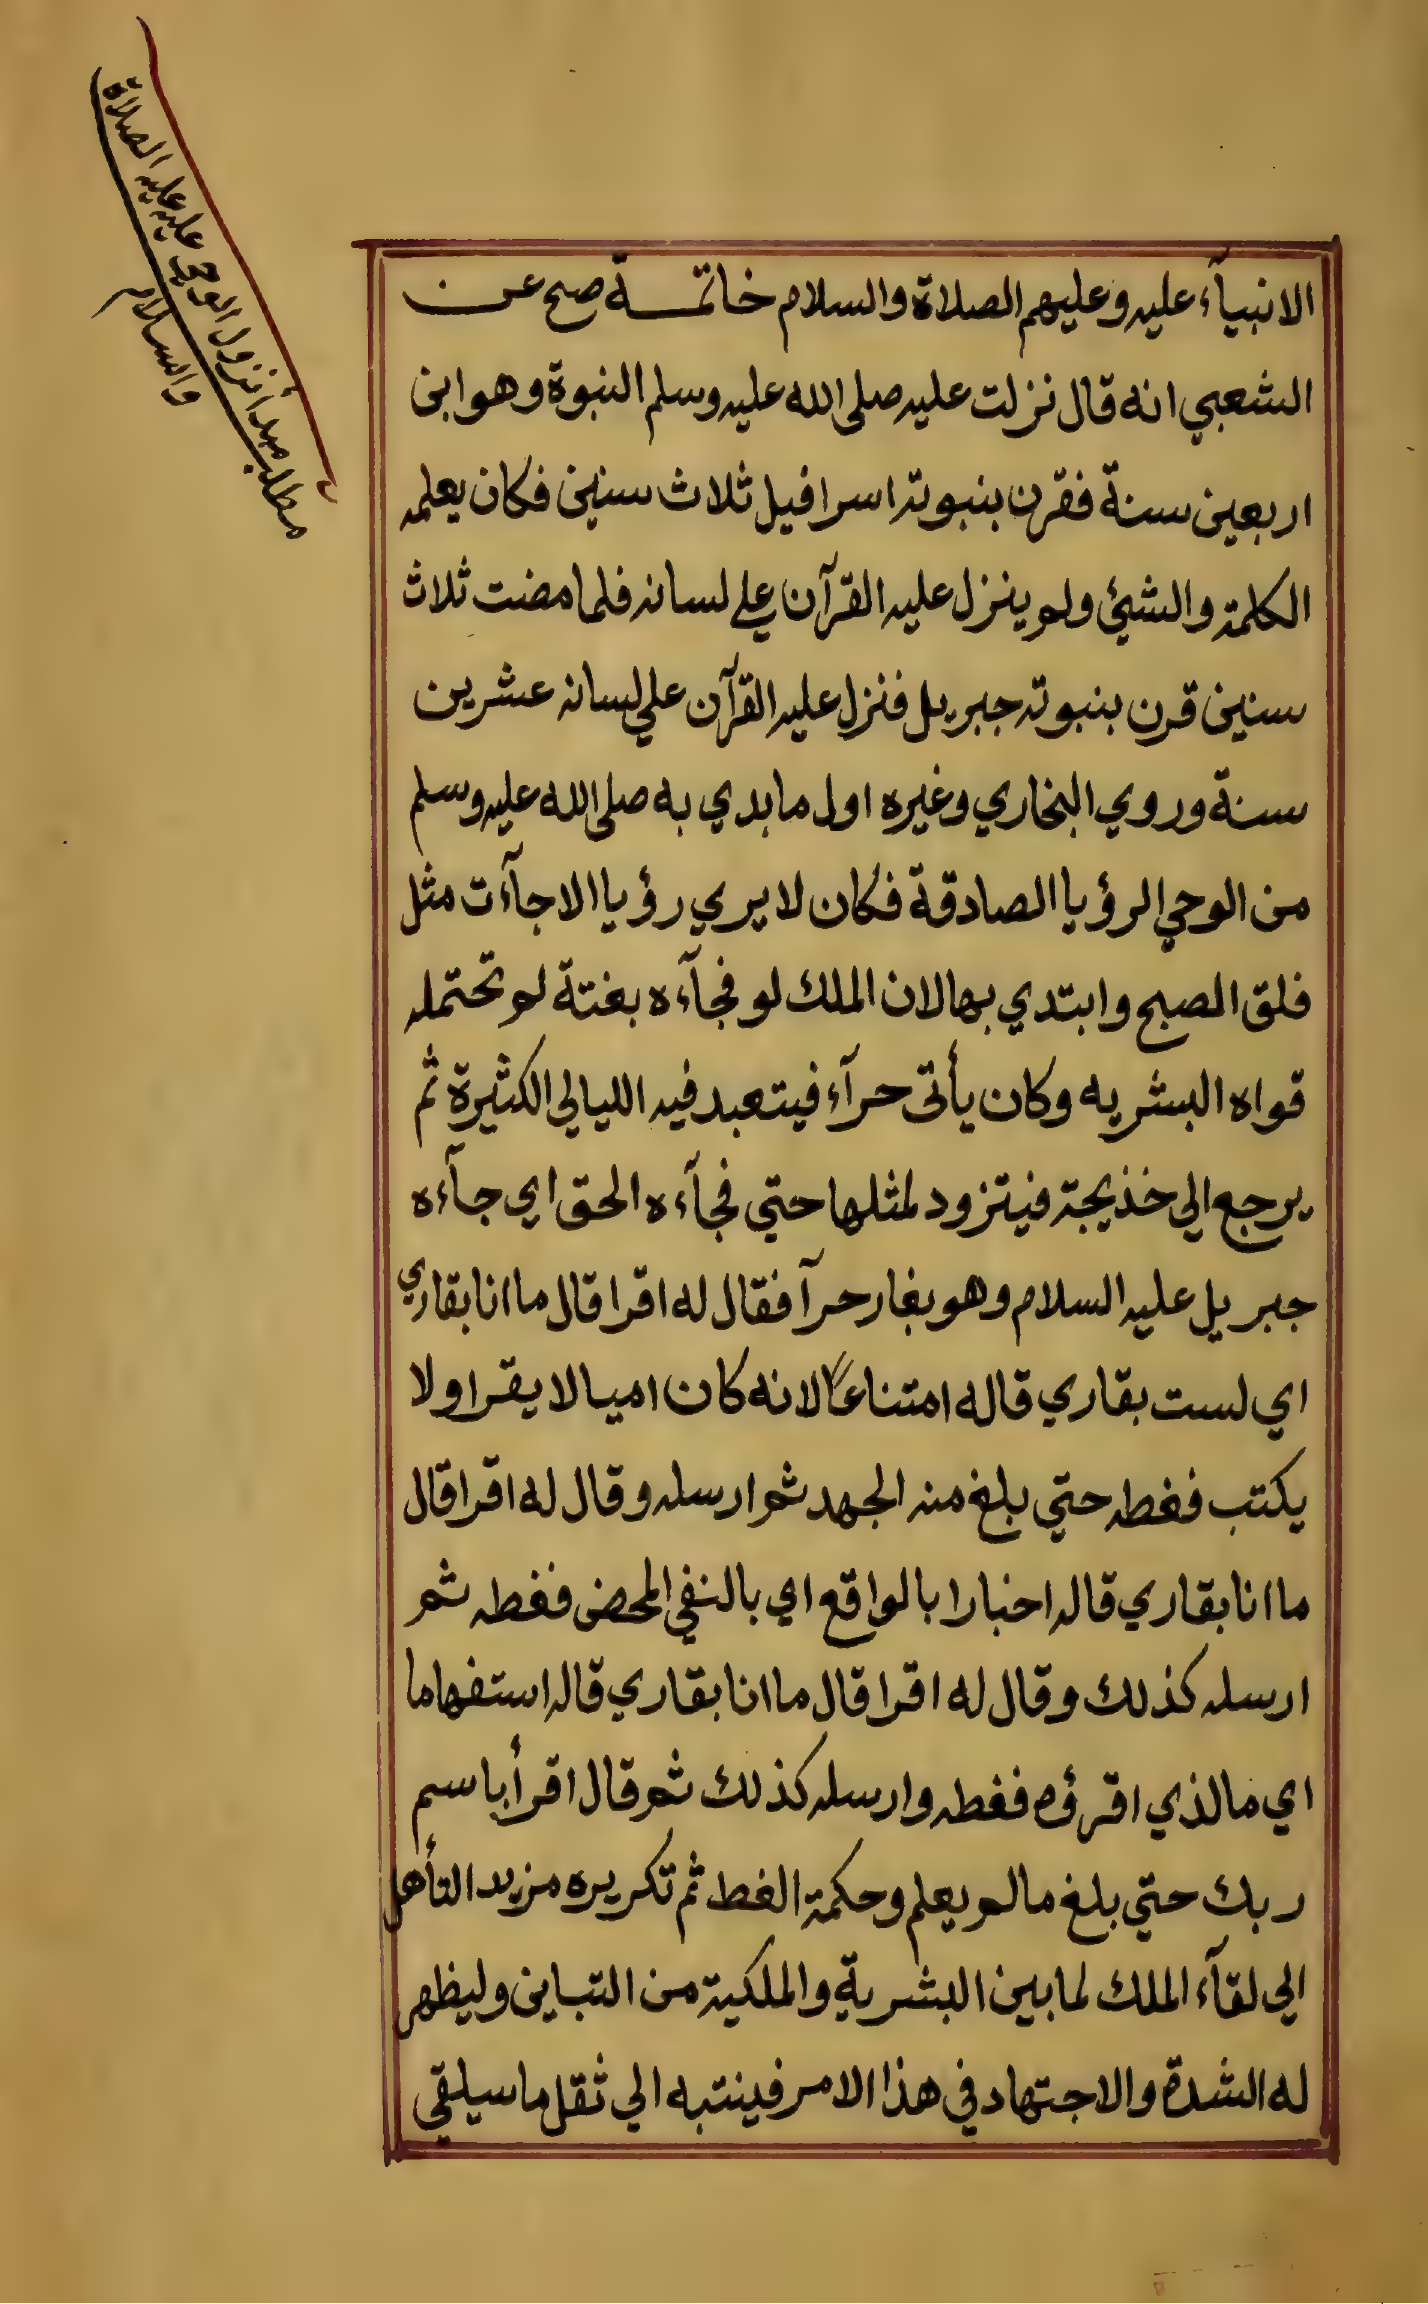 مطلب مبدأ نزول الوحي عليه عليه الصلاة
والسلام
الانبيآء عليه وعليهم الصلاة والسلام خاتمة صح عن
الشعبي انه قال نزلت عليه صلى الله عليه وسلم النبوة وهو ابن
اربعين سنة فقرن بنبوته اسرافيل ثلاث سنين فكان يعلمه
الكلمة والشئ ولم ينزل عليه القرآن علي لسانه فلما مضت ثلاث
سنين قرن بنبوته جبريل فنزل عليه القرآن علي لسانه عشرين
سنة وروي البخاري وغيره اول ما بدي به صلى الله عليه وسلم
من الوحي الرؤيا الصادقة فكان لا يري رؤيا الا جآءت مثل
فلق الصبح وابتدي بها لان الملك لو فجآءه بغتة لم تحتمله
قواه البشريه وكان يأتى حرآء فيتعبد فيه الليالي الكثيرة ثم
يرجع الي خذيجة فيتزود لمثلها حتي فجآءه الحق اي جآءه
جبريل عليه السلام وهو بغار حرآ فقال له اقرا قال ما انا بقاري
اي لست بقاري قاله امتناعا لانه كان اميا لا يقرا ولا
يكتب فغطه حتي بلغ منه الجهد ثم ارسله وقال له اقرا قال
ما انا بقاري قاله اخبارا بالواقع اي بالنفي المحض فغطه ثم
ارسله كذلك وقال له اقرا قال ما انا بقاري قاله استفهاما
اي مالذي اقرؤه فغطه وارسله كذلك ثم قال اقرأ باسم
ربك حتي بلغ مالم يعلم وحكمة الغط ثم تكريره مزيد التأهل
الي لقآء الملك لما بين البشرية والملكية من التباين وليظهر
له الشدة والاجتهاد في هذا الامر فينتبه الي ثقل ما سيلقي